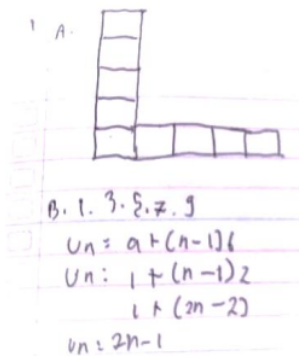 1 A.
B. 1. 3. 5. 7. 9
Un = a + (n-1)b
Un: 1 + (n-1)2
1 + (2n-2)
un: 2n-1